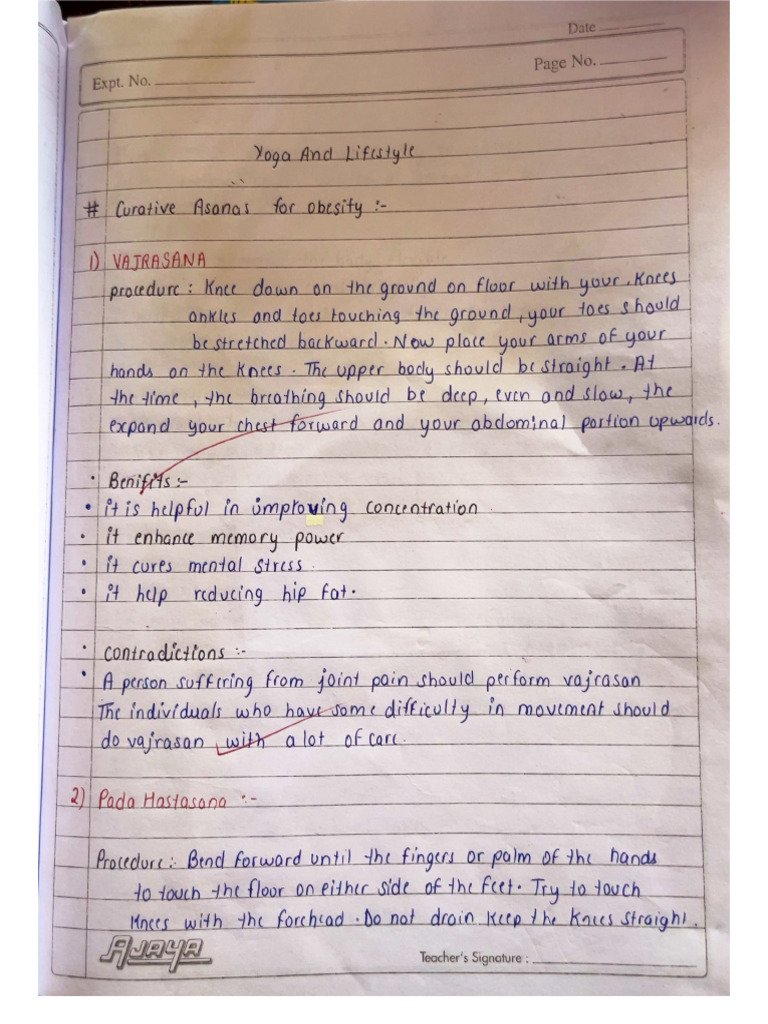 Date
Expt. No.
Page No.
Yoga And Lifestyle
# Curative Asanas for obesity :-
1) VAJRASANA
procedure : Knee down on the ground on floor with your Knees
ankles and toes touching the ground, your toes should
be stretched backward. Now place your arms of your
hands on the Knees. The upper body should be straight. At
the time, the breathing should be deep, even and slow, the
expand your chest forward and your abdominal portion upwards.
• Benifits :-
• it is helpful in improving concentration
• it enhance memory power
• it cures mental stress.
• it help reducing hip fat.
• Contradictions :-
• A person suffering from joint pain should perform vajrasan
The individuals who have some difficulty in movement should
do vajrasan with a lot of care.
2) Pada Hastasana :-
Procedure :- Bend forward until the fingers or palm of the hands
to touch the floor on either side of the feet. Try to touch
Knees with the forehead. Do not drain Keep the Knees straight.
AJAYA
Teacher's Signature :